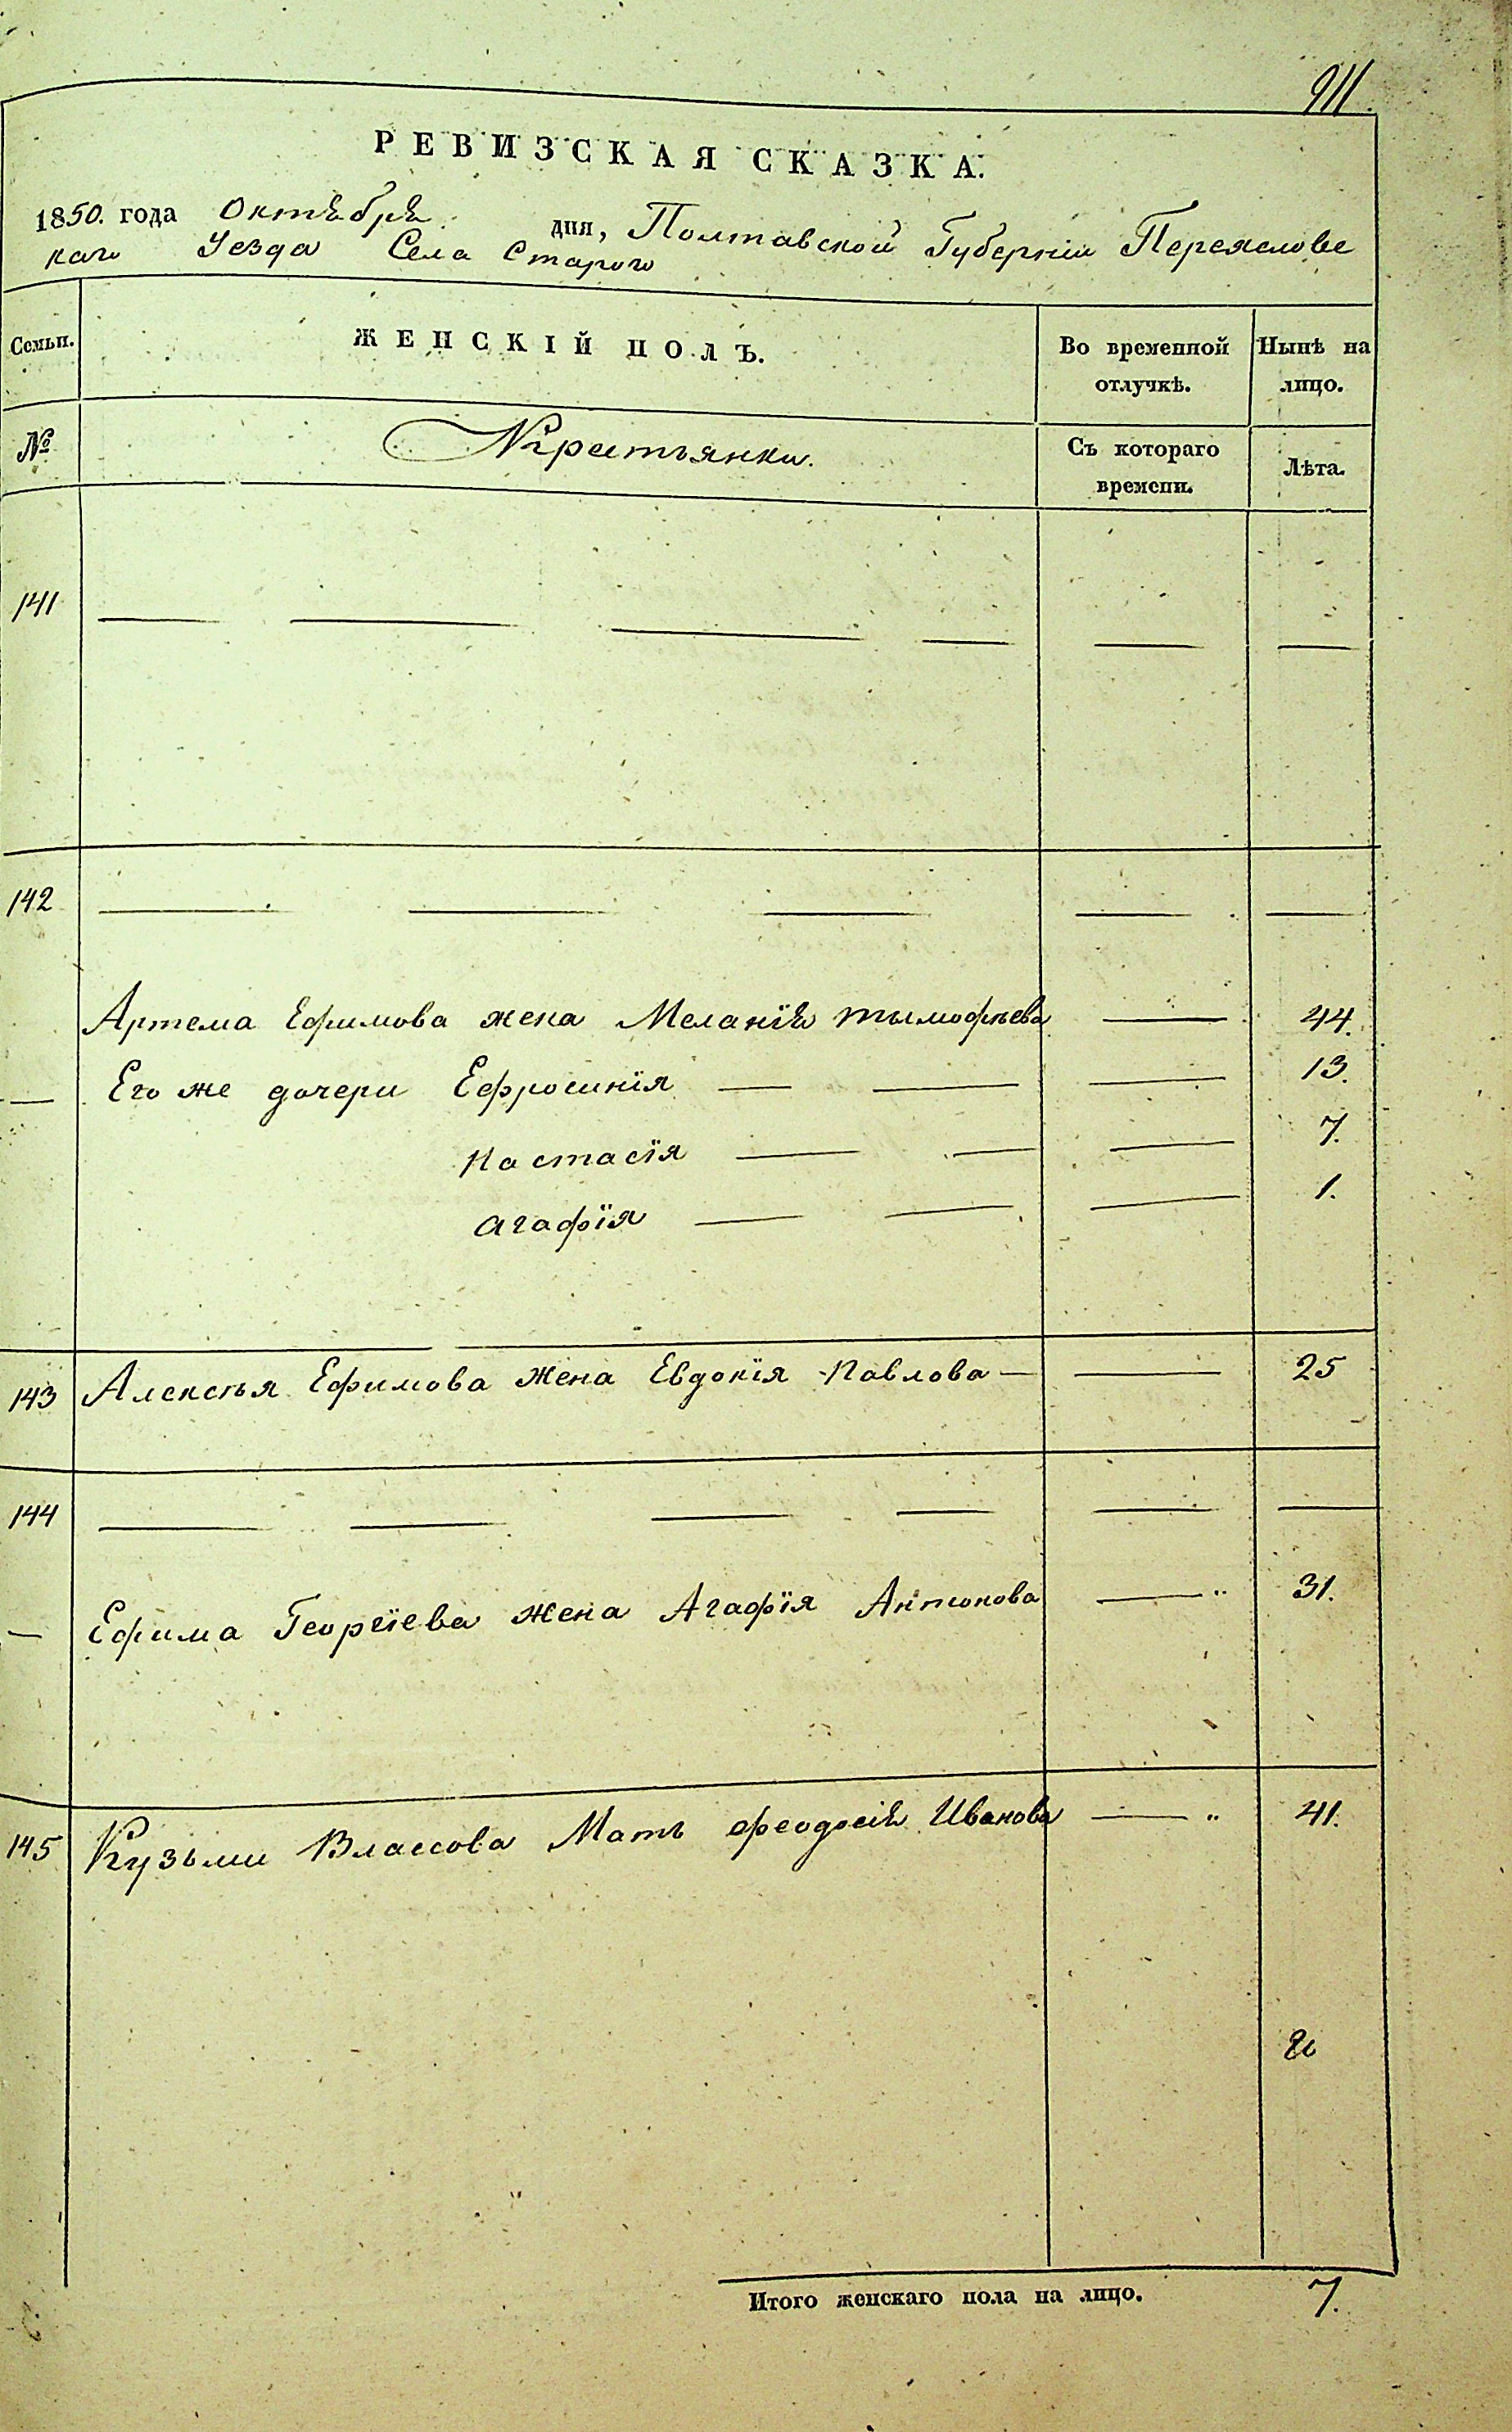 911.
РЕВИЗСКАЯ СКАЗКА.
1850. года Октября дня, Полтавской Губерніи Переяслове
каго Уезда Села Старого
Семьи. ЖЕНСКІЙ ПОЛЪ. Во временной отлучкѣ. Нынѣ на лицо.
№ Крестьянки. Съ котораго времени. Лѣта.
141
142
Артема Ефимова жена Меланія Тымофѣева 44.
Его же дочери Ефросинія 13.
Настасія 7.
Агафія 1.
143 Алексѣя Ефимова жена Евдокія Павлова 25
144
Ефима Георгіева жена Агафія Антонова 31.
145 Кузьми Влассова Мать Феодосія Иванова 41.
Итого женскаго пола на лицо. 7.